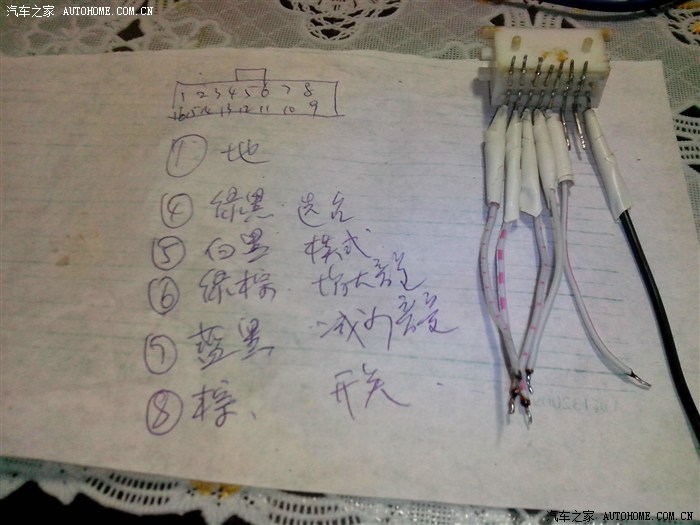 汽车之家 AUTOHOME.COM.CN
1 2 3 4 5 6 7 8
16 15 14 13 12 11 10 9
① 地
④ 绿黑 选台
⑤ 白黑 模式
⑥ 绿棕 增大音量
⑦ 蓝黑 减小音量
⑧ 棕、 开关.
汽车之家 AUTOHOME.COM.CN